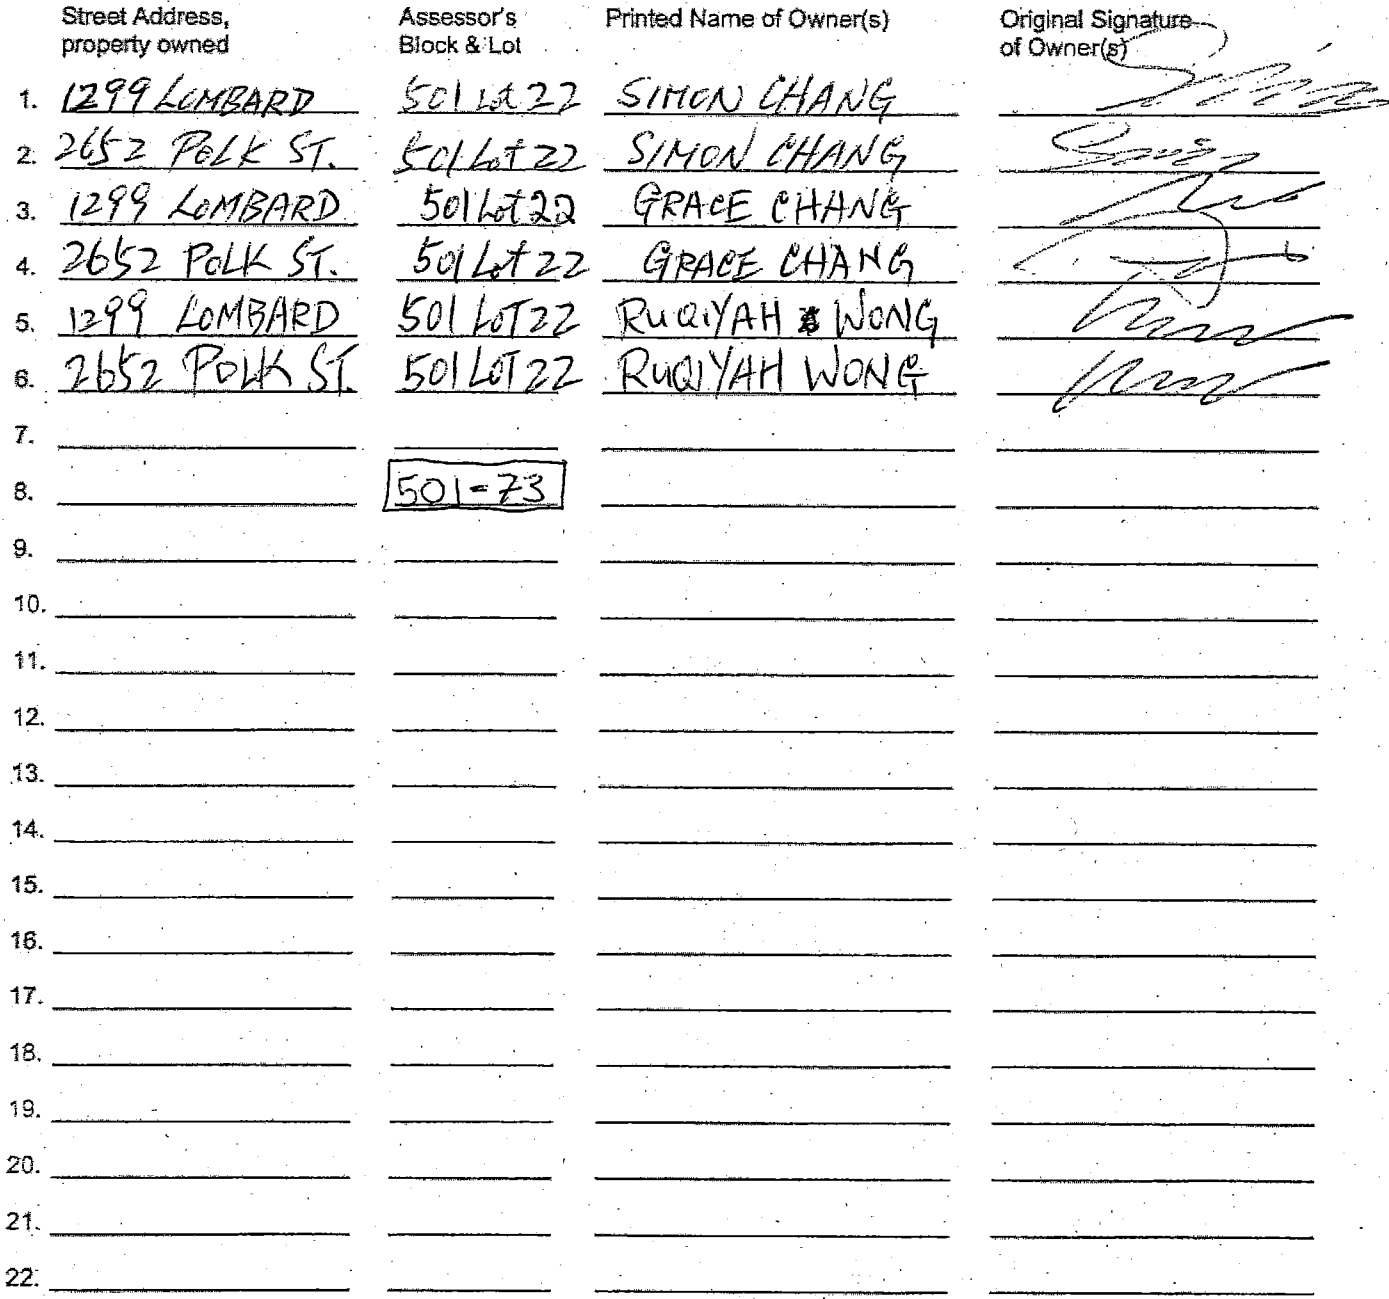 Street Address, Assessor's Printed Name of Owner(s) Original Signature
property owned Block & Lot of Owner(s)
1. 1299 LOMBARD 501 Lot 22 SIMON CHANG
2. 2652 POLK ST. 501 Lot 22 SIMON CHANG
3. 1299 LOMBARD 501 Lot 22 GRACE CHANG
4. 2652 POLK ST. 501 Lot 22 GRACE CHANG
5. 1299 LOMBARD 501 LOT 22 RUQIYAH WONG
6. 2652 POLK ST. 501 LOT 22 RUQIYAH WONG
7.
8. 501-73
9.
10.
11.
12.
13.
14.
15.
16.
17.
18.
19.
20.
21.
22.